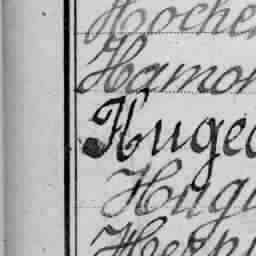 Hoche
Hamon
Hugeo
Hugu
Herpi